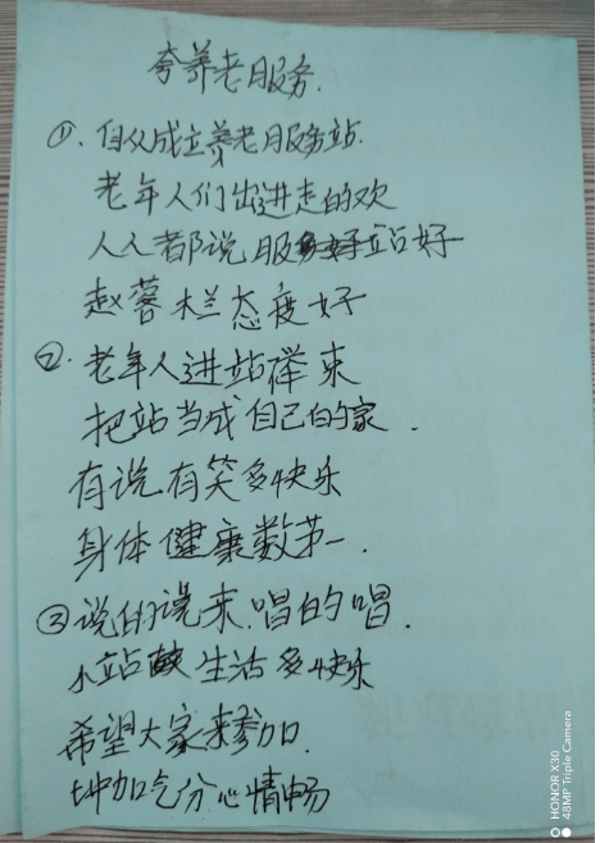 夸养老服务.
①.自从成立养老服务站.
老年人们出进走的欢
人人都说服务站好
赵蓉栏态度好
②.老年人进站来
把站当成自己的家.
有说有笑多快乐
身体健康数第一.
③说的说来.唱的唱.
小站生活多快乐
希望大家来参加.
加气分心情畅
HONOR X30
48MP Triple Camera